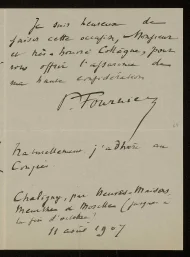 Je suis heureux de
saisir cette occasion, Monsieur
et très honoré Collègue, pour
vous offrir l'assurance de
ma haute considération
P. Fournier
Naturellement j'adhère au
Congrès
Chaligny, par Neuves-Maisons,
Meurthe et Moselle (jusqu'à
la fin d'octobre)
11 août 1907